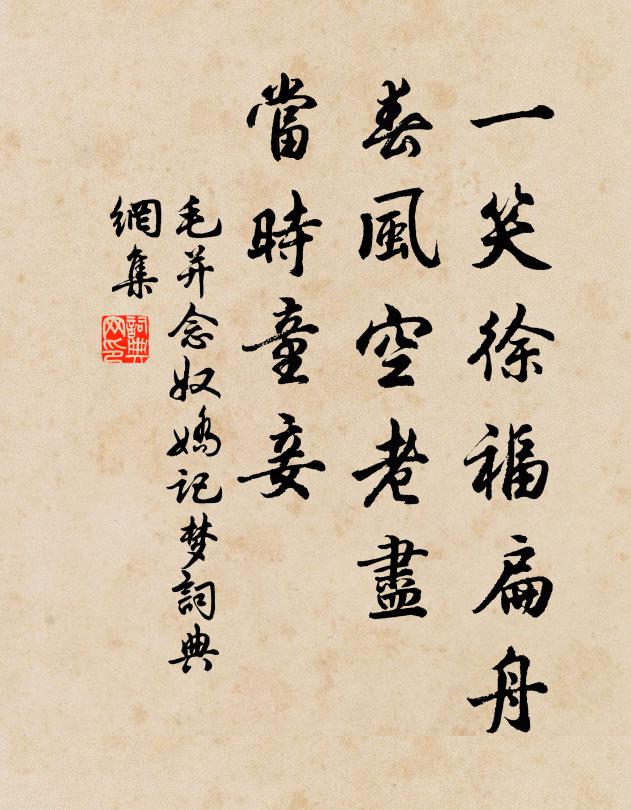 一笑徐福扁舟
春風空老盡
當時童妾
毛并念奴嬌記梦詞典
網集
詞典
网印